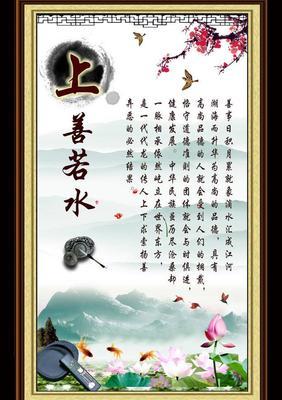 上善若水
善事日积月累就象滴水汇成江河
湖海而升华为高尚的品德，具有
高尚品德的人就会受到人们的拥戴，
恪守道德准则的团体就会与时俱进，
健康发展。中华民族虽历尽沧桑却
一脉相承依然屹立在世界东方，
是一代代龙的传人上下求索扬善
弃恶的必然结果